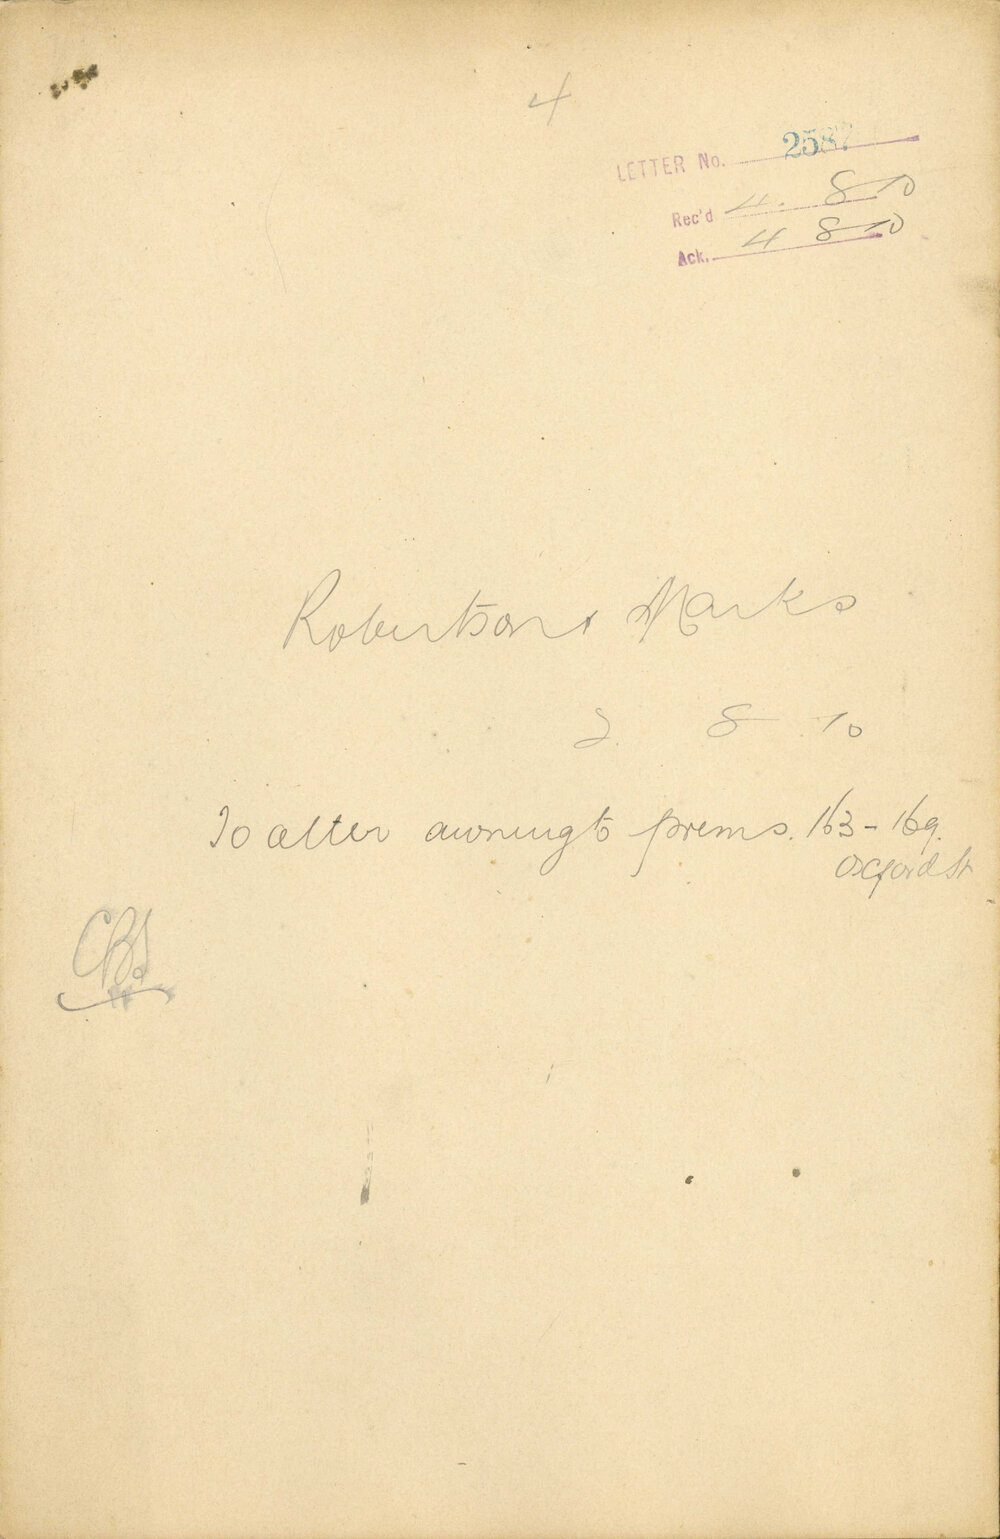 4
LETTER No. 2587
Rec'd 4. 8 10
Ack. 4 8 10
Robertson & Marks
2. 8 10
To alter awning to prems. 163-169.
Oxford St